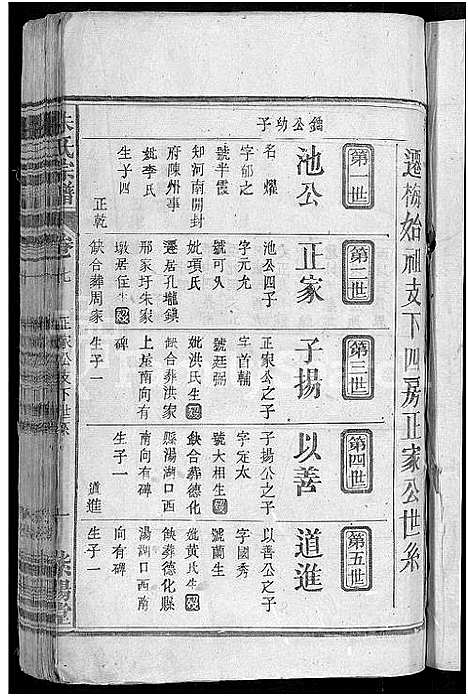 遷梅始祖支下四房正家公世系
鑑公幼子
第一世
池公
名燿
字郁之
號半霞
知河南開封
府陳州事
妣李氏
生子四
正乾
第二世
正家
池公四子
字元允
號可久
妣項氏
遷居孔壠鎮
邢家圩朱家
墩居住生歿
缺合葬周家
第三世
子揚
正家公之子
字首輔
號廷弼
妣洪氏生歿
缺合葬洪家
上屋南向有
碑
生子一
第四世
以善
子揚公之子
字定太
號大相生歿
缺合葬德化
縣湯湖口西
南向有碑
生子一
道進
第五世
道進
以善公之子
字國秀
號蘭生
妣黃氏生歿
缺葬德化縣
湯湖口西南
向有碑
生子一
朱氏宗譜
卷七
正家公支下世系
一
紫陽堂